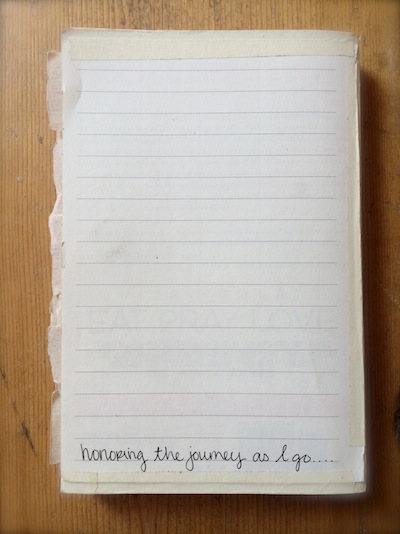 EAT PRAY LOVE
honoring the journey as I go....